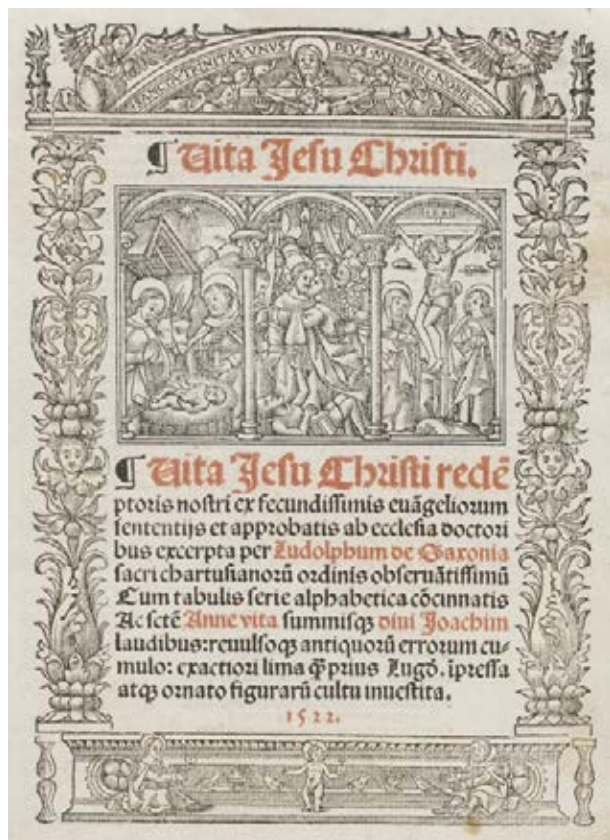 SANCTA TRINITAS VNVS DEVS MISERERE NOBIS
¶ Vita Jesu Christi.
INRI
¶ Vita Jesu Christi redē
ptoris nostri ex fecundissimis euāgeliorum
sententijs et approbatis ab ecclesia doctori
bus excerpta per Ludolphum de Saxonia
sacri chartusianorū ordinis obseruātissimū
Cum tabulis serie alphabetica cōcinnatis
Ac sctē Anne vita summisqꝫ diui Joachim
laudibus: reuulsoqꝫ antiquorū errorum cu-
mulo: exactiori lima qꝫ̄ prius Lugd̄. īpressa
atqꝫ ornato figurarū cultu inuestita.
1522.